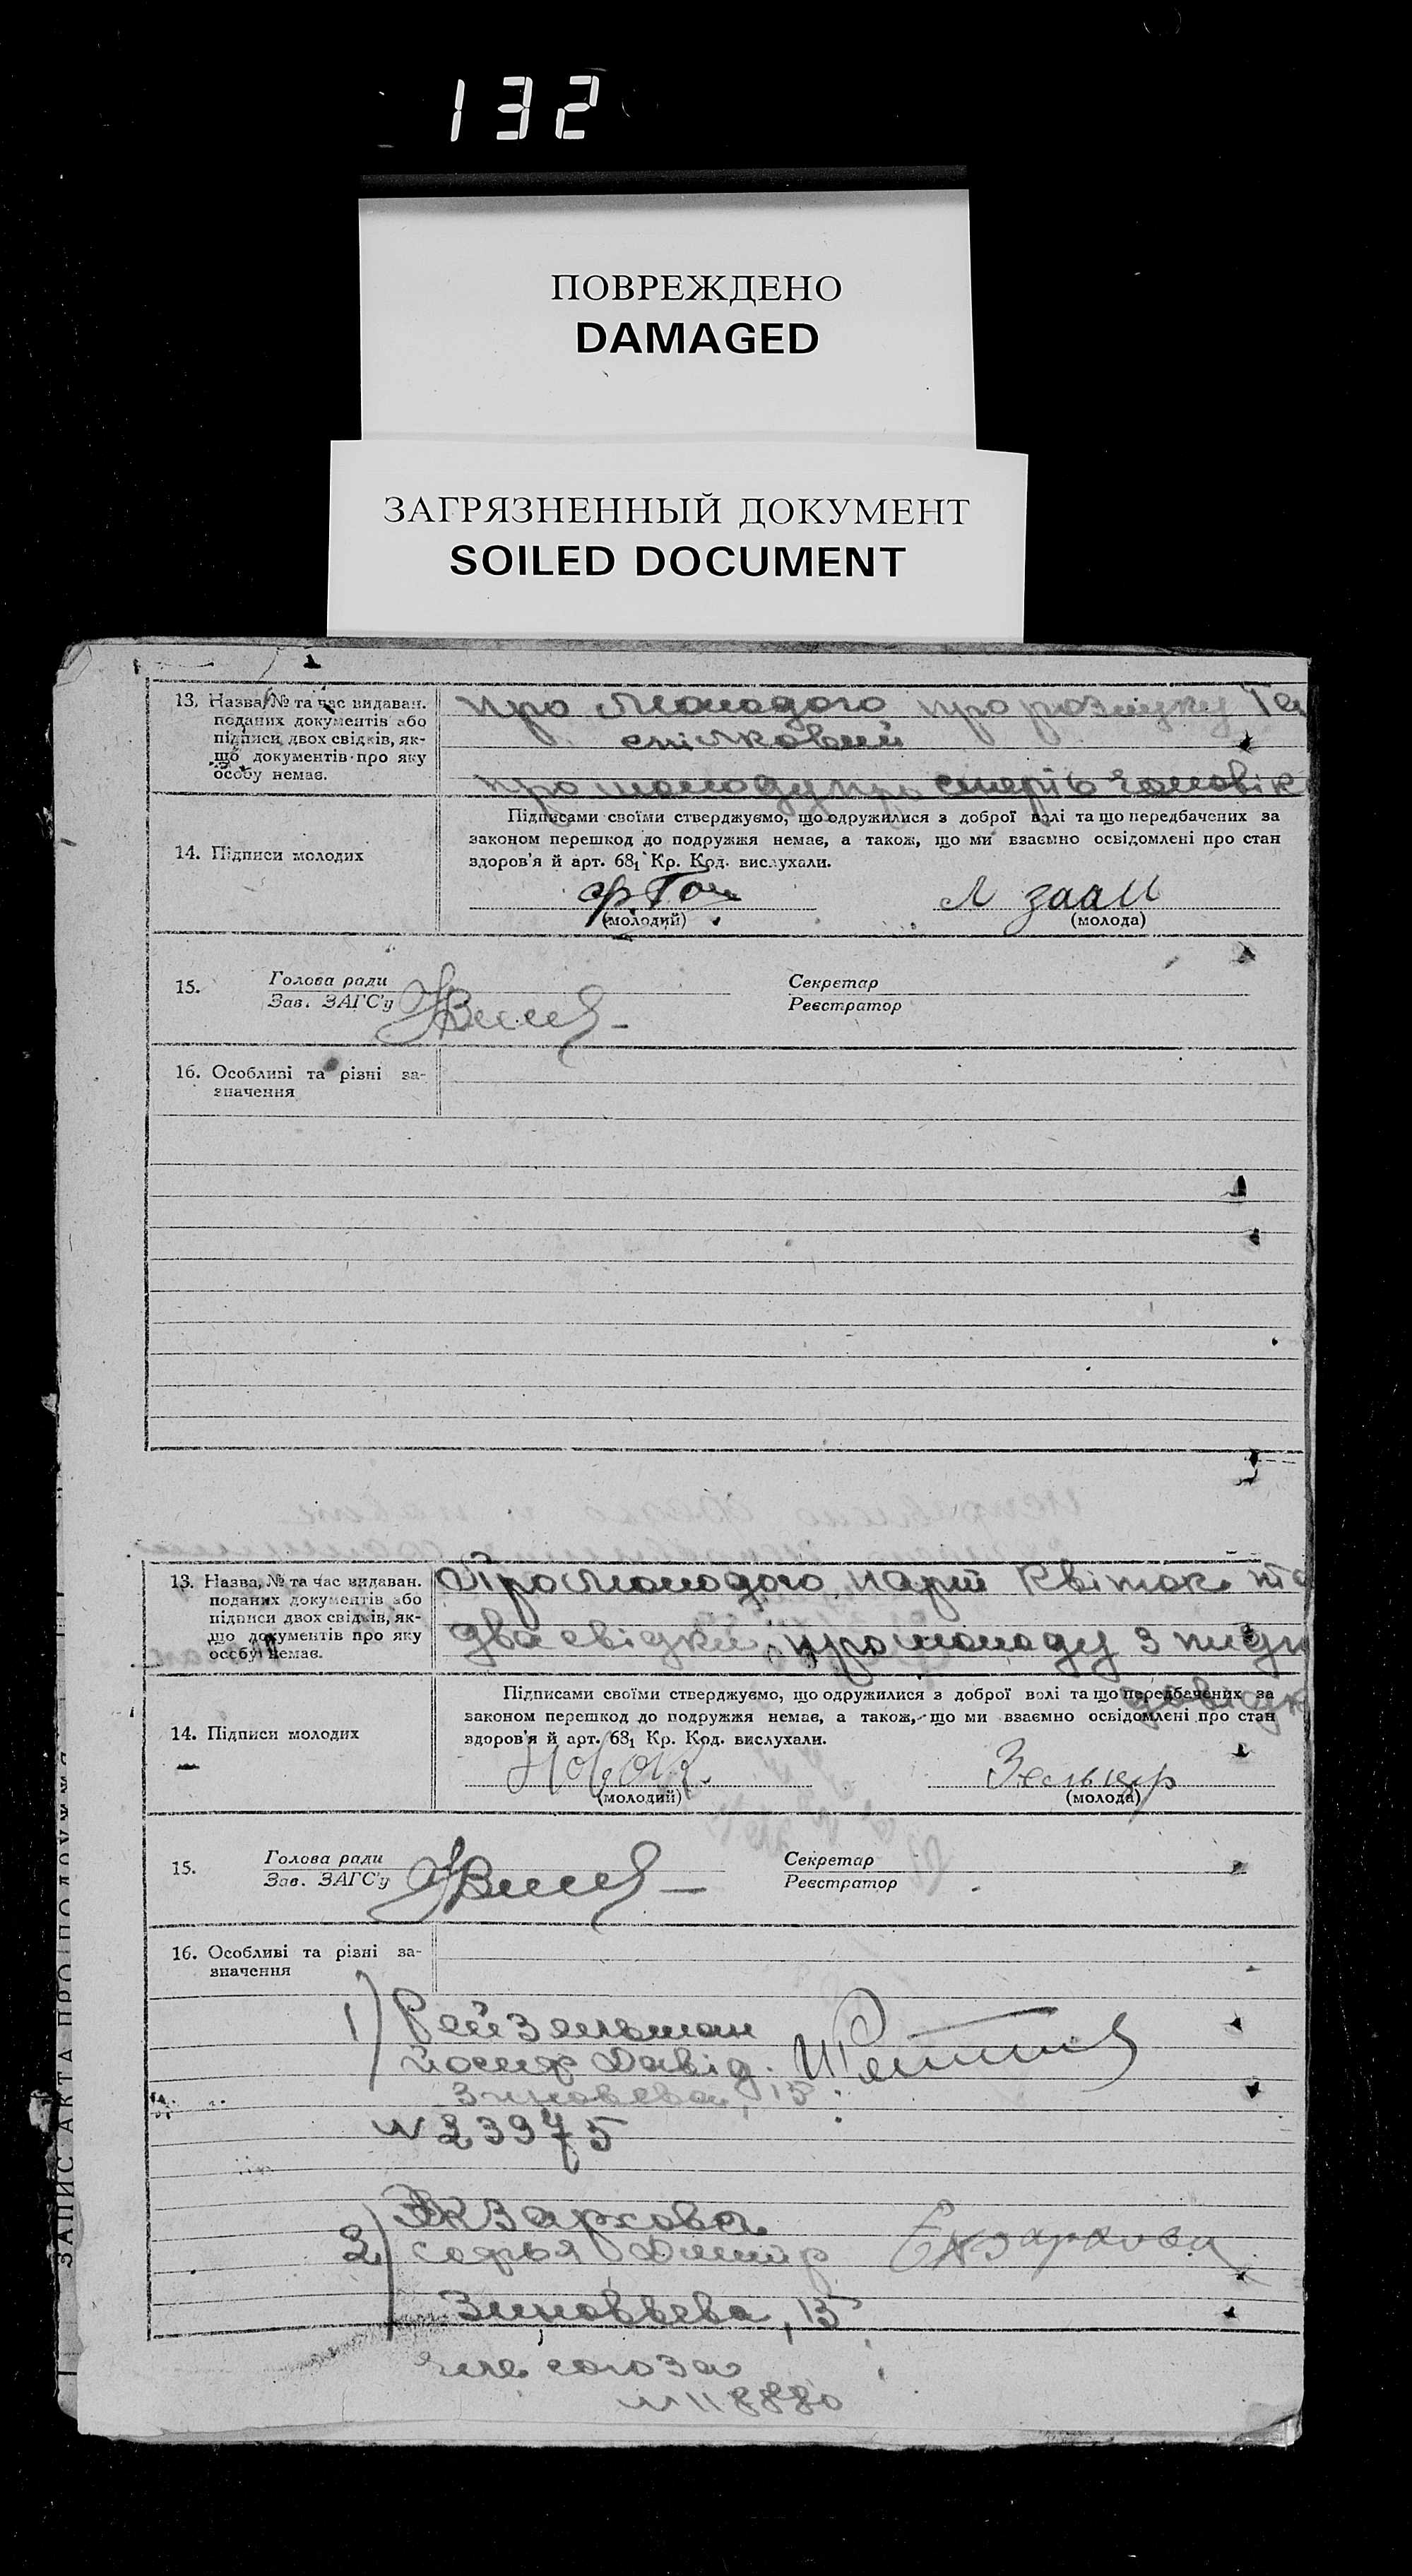 132
ПОВРЕЖДЕНО
DAMAGED
ЗАГРЯЗНЕННЫЙ ДОКУМЕНТ
SOILED DOCUMENT
13. Назва, № та час видаван.
поданих документів або
підписи двох свідків, як-
що документів про яку
особу немає.
про молодого про розлуку
спілковий
про молоду про смерть чоловік
14. Підписи молодих
Підписами своїми стверджуємо, що одружилися з доброї волі та що передбачених за
законом перешкод до подружжя немає, а також, що ми взаємно освідомлені про стан
здоров'я й арт. 68₁ Кр. Код. вислухали.
(молодий) (молода)
15. Голова ради Секретар
Зав. ЗАГС'у Реєстратор
16. Особливі та різні за-
значення
13. Назва, № та час видаван.
поданих документів або
підписи двох свідків, як-
що документів про яку
особу немає.
Про молодого парт квіток та
два свідки, про молоду з
довідк
14. Підписи молодих
Підписами своїми стверджуємо, що одружилися з доброї волі та що передбачених за
законом перешкод до подружжя немає, а також, що ми взаємно освідомлені про стан
здоров'я й арт. 68₁ Кр. Код. вислухали.
Зельцер
(молодий) (молода)
15. Голова ради Секретар
Зав. ЗАГС'у Реєстратор
16. Особливі та різні за-
значення
1) Рейзельман
Йосиф Давід.
Зиновьева, 15
№ 23975
Экзархова
2) Софья Екзархова
Зиновьева, 15
союза
№ 118880
ЗАПИС АКТА ПРО ПОДРУЖЖЯ